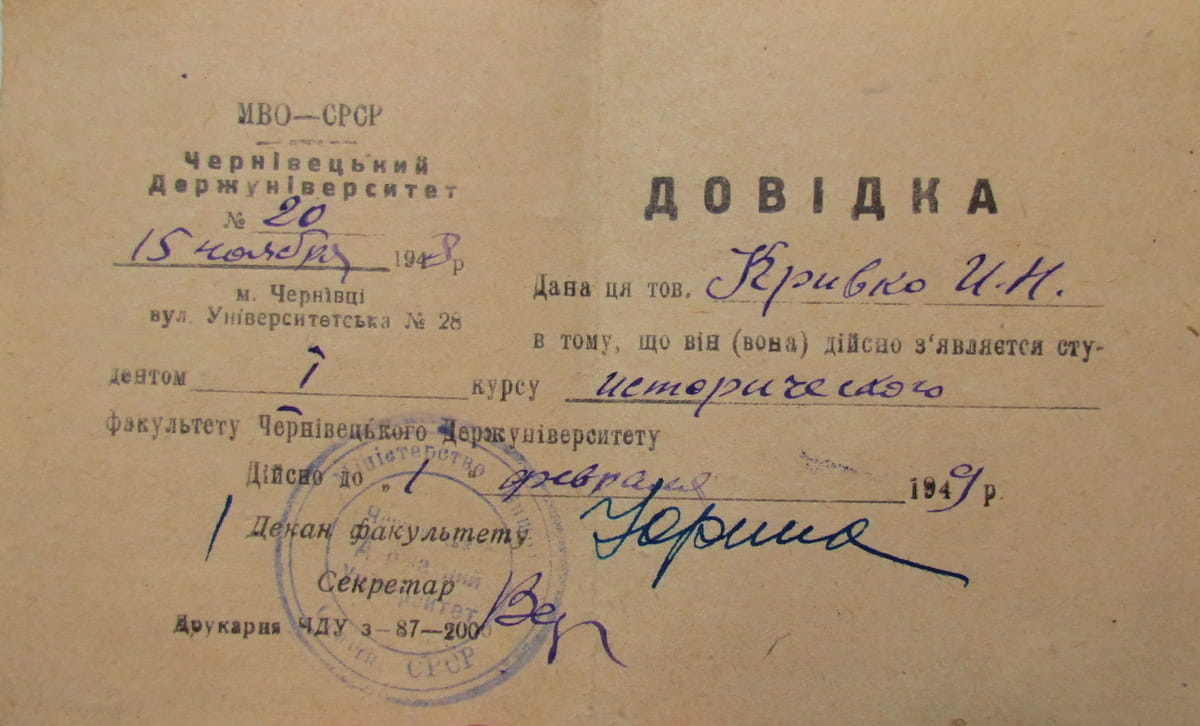 МВО—СРСР
Чернівецький
Держуніверситет
№ 20
15 ноября 1948 р
м. Чернівці
вул. Університетська № 28
ДОВІДКА
Дана ця тов. Кривко И.Н.
в тому, що він (вона) дійсно з'являєтся сту-
дентом I курсу исторического
факультету Чернівецького Держуніверситету
Дійсно до „1" февраля 1949 р.
Декан факультету
Секретар
Друкарня ЧДУ з—87—2000
Міністерство
СРСР